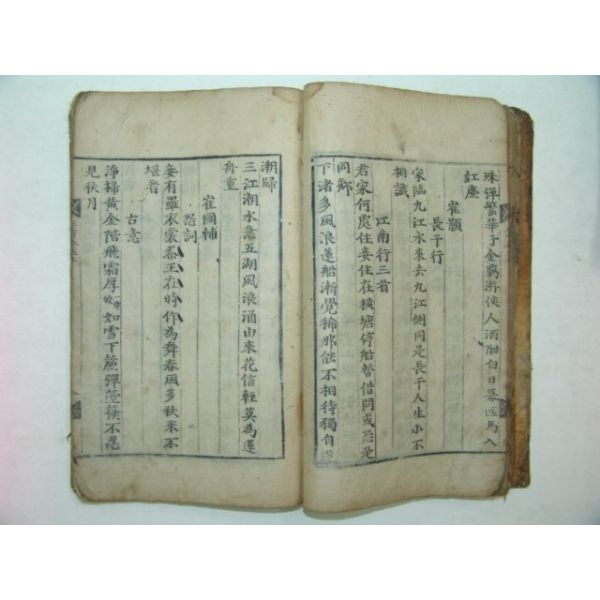 珠彈繁華子金羈游俠人酒酣白日暮走馬入
紅塵
崔顥
長干行
家臨九江水來去九江側同是長干人生小不
相識
江南行三首
君家何處住妾住在橫塘停船暫借問或恐是
同鄉
下渚多風浪蓮船漸覺稀那能不相待獨自
潮歸
三江潮水急五湖風浪涌由來花信輕莫為蓮
舟重
崔國輔
怨詞
妾有羅衣裳秦王在時作為舞春風多秋來不
堪着
古意
淨掃黃金階飛霜厚如雪下簾彈箜篌不忍
見秋月